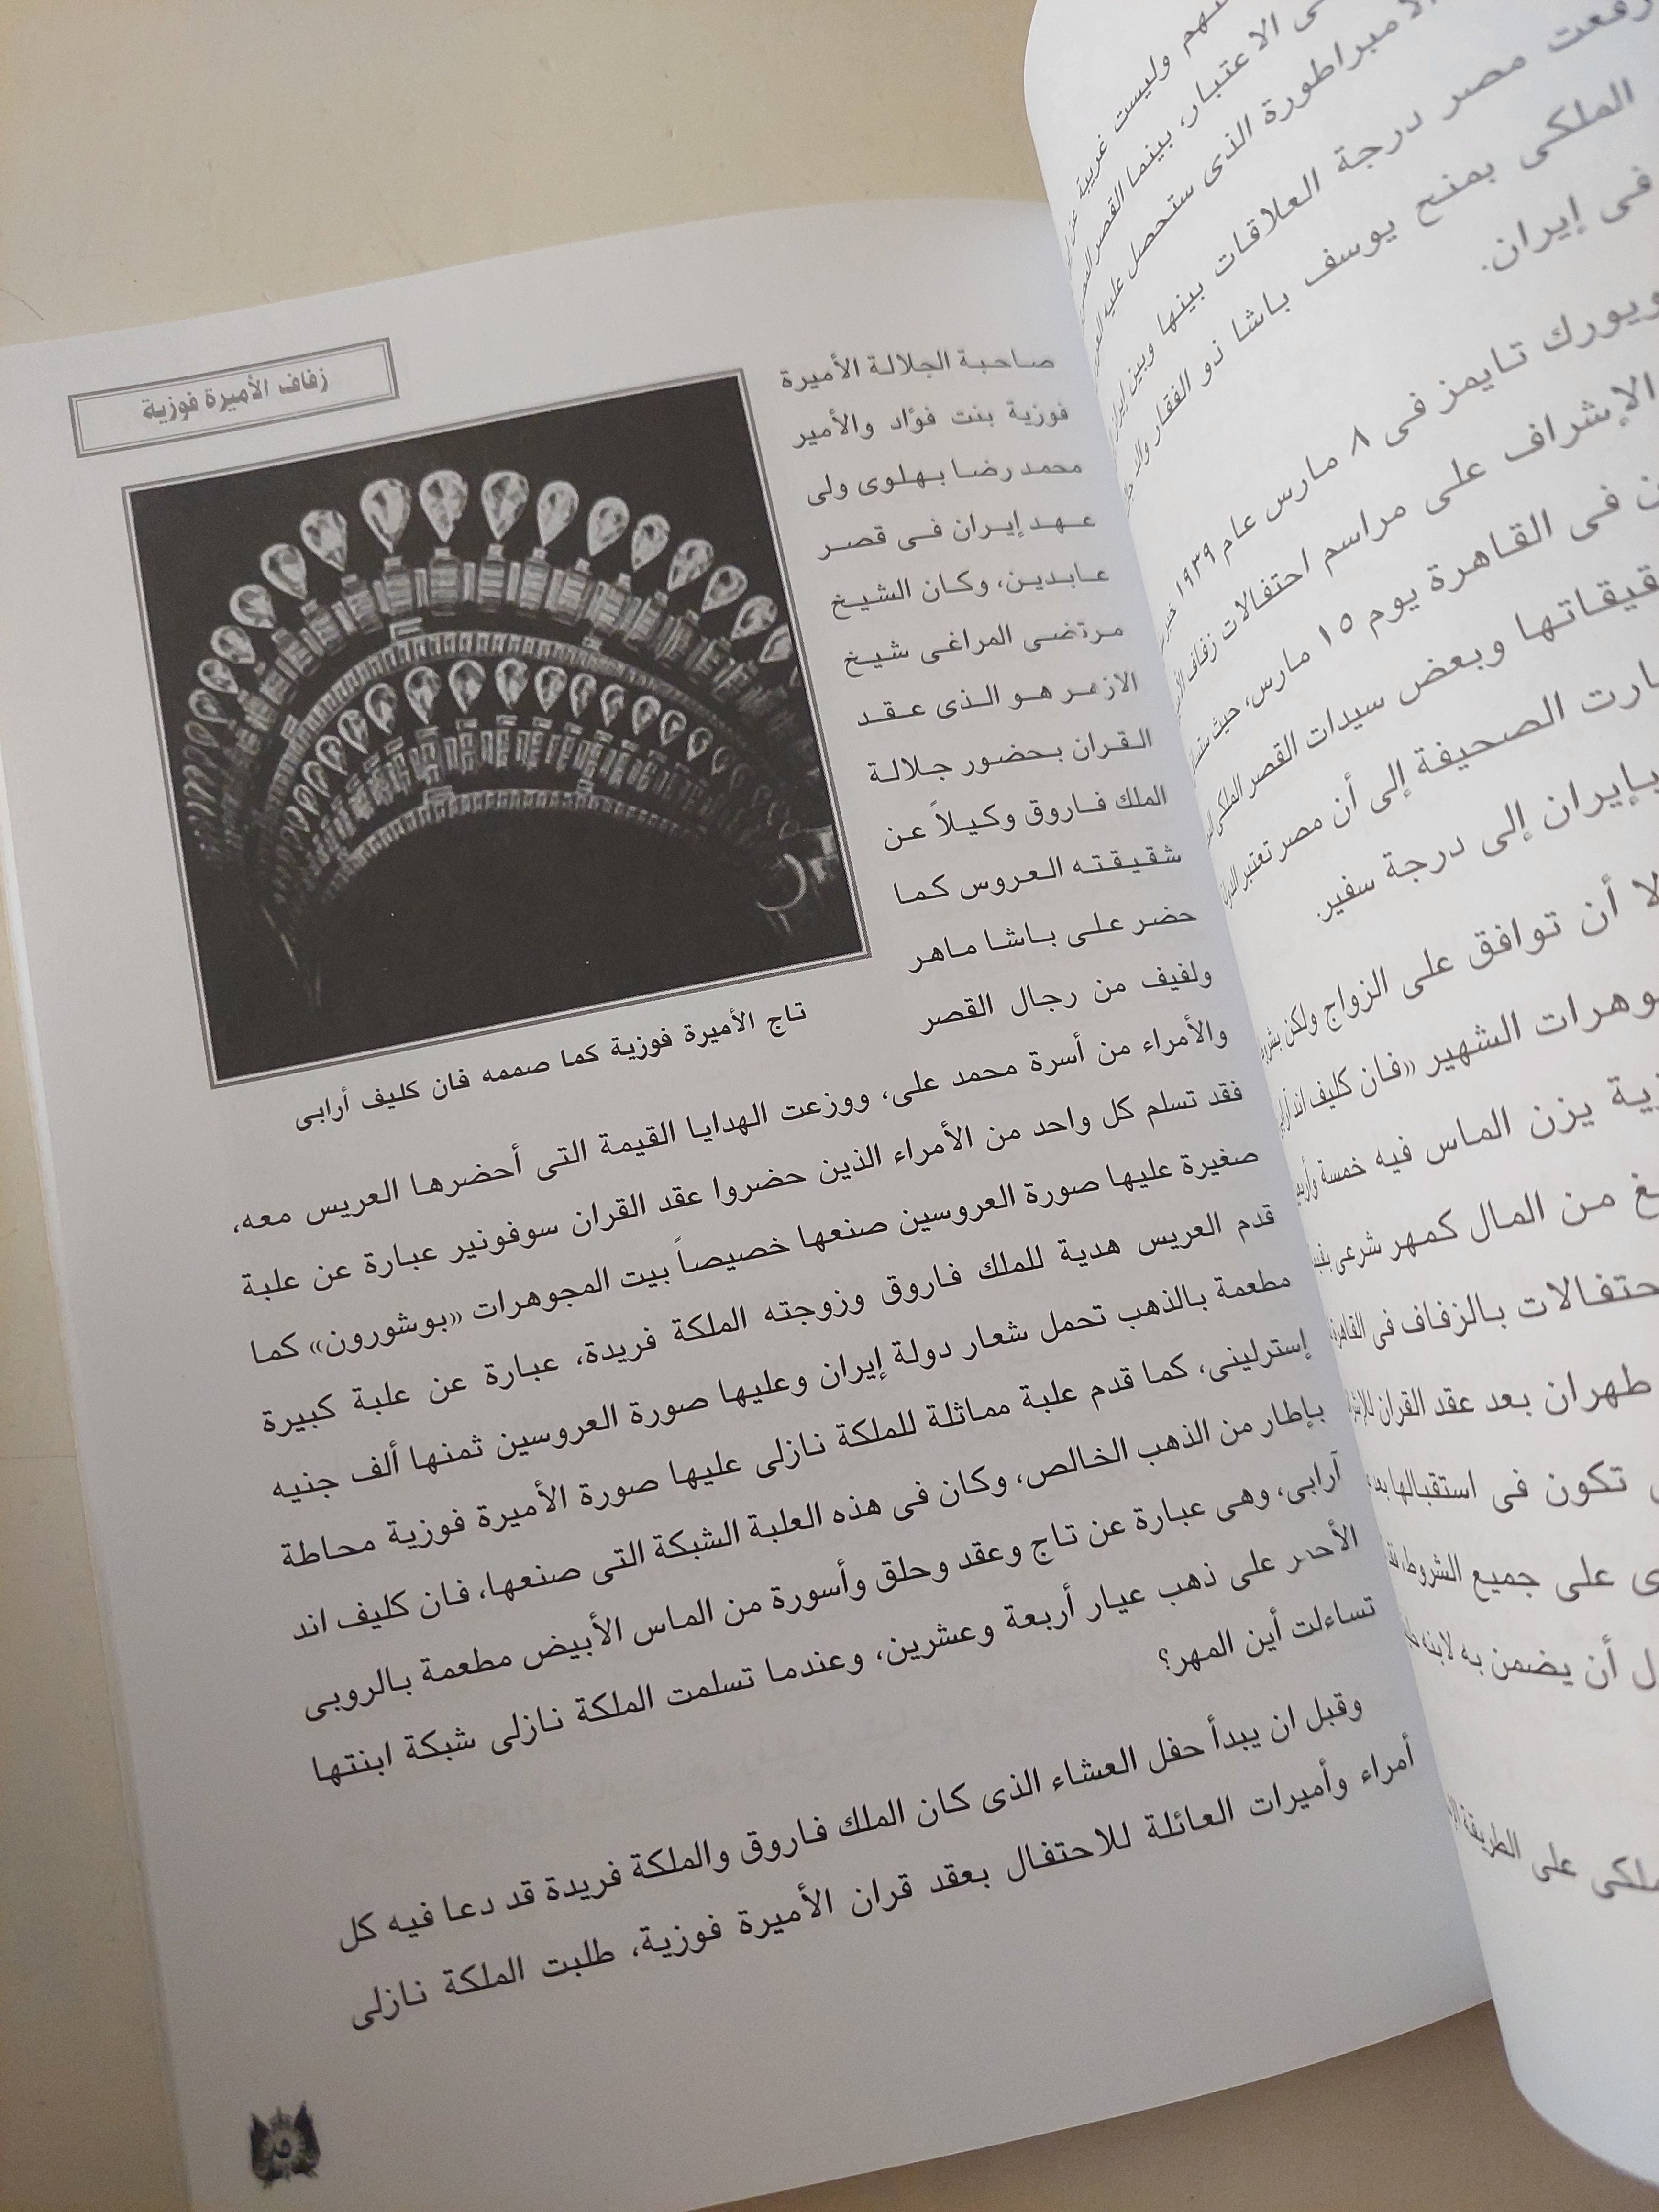 وليست غريبة
الاعتبار، بينما القصر
الامبراطورة الذى ستحصل عليه
رفعت مصر درجة العلاقات بينها وبين إيران
الملكى بمنح يوسف باشا ذو الفقار
فى إيران.
تايمز فى ٨ مارس عام ١٩٣٩
الإشراف على مراسم احتفالات زفاف
فى القاهرة يوم ١٥ مارس، حيث
وبعض سيدات القصر الملكى
الصحيفة إلى أن مصر تعتبر
بإيران إلى درجة سفير.
أن توافق على الزواج ولكن
الشهير «فان كليف اند
يزن الماس فيه خمسة
من المال كمهر شرعى
بالزفاف فى القاهرة
طهران بعد عقد القران
تكون فى استقبالها
على جميع الشروط،
أن يضمن به لابنه
على الطريقة
زفاف الأميرة فوزية
صاحبة الجلالة الأميرة
فوزية بنت فؤاد والأمير
محمد رضا بهلوى ولى
عهد إيران فى قصر
عابدين، وكان الشيخ
مرتضى المراغى شيخ
الازهر هو الذى عقد
القران بحضور جلالة
الملك فاروق وكيلاً عن
شقيقته العروس كما
حضر على باشا ماهر
ولفيف من رجال القصر
تاج الأميرة فوزية كما صممه فان كليف أرابى
والأمراء من أسرة محمد على، ووزعت الهدايا القيمة التى أحضرها العريس معه،
فقد تسلم كل واحد من الأمراء الذين حضروا عقد القران سوفونير عبارة عن علبة
صغيرة عليها صورة العروسين صنعها خصيصاً بيت المجوهرات «بوشورون» كما
قدم العريس هدية للملك فاروق وزوجته الملكة فريدة، عبارة عن علبة كبيرة
مطعمة بالذهب تحمل شعار دولة إيران وعليها صورة العروسين ثمنها ألف جنيه
إسترلينى، كما قدم علبة مماثلة للملكة نازلى عليها صورة الأميرة فوزية محاطة
بإطار من الذهب الخالص، وكان فى هذه العلبة الشبكة التى صنعها، فان كليف اند
آرابى، وهى عبارة عن تاج وعقد وحلق وأسورة من الماس الأبيض مطعمة بالروبى
الأحمر على ذهب عيار أربعة وعشرين، وعندما تسلمت الملكة نازلى شبكة ابنتها
تساءلت أين المهر؟
وقبل ان يبدأ حفل العشاء الذى كان الملك فاروق والملكة فريدة قد دعا فيه كل
أمراء وأميرات العائلة للاحتفال بعقد قران الأميرة فوزية، طلبت الملكة نازلى